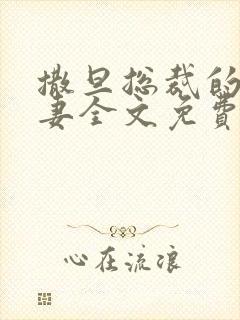 撒旦总裁的
妻全文免費
心在流浪